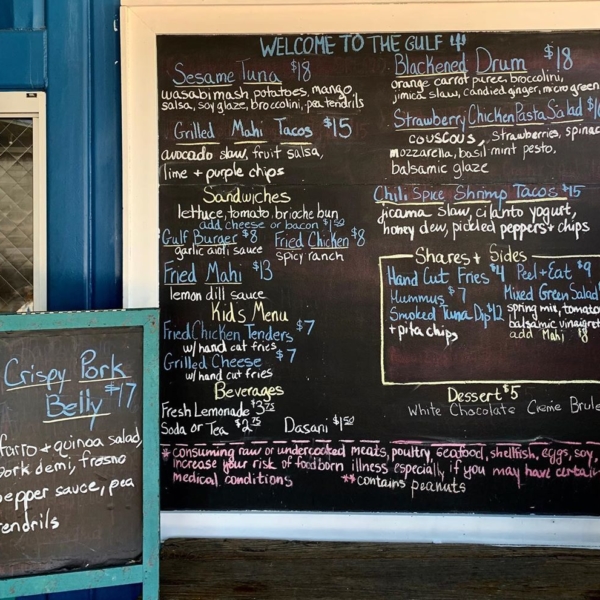 WELCOME TO THE GULF
Sesame Tuna $18
wasabi mash potatoes, mango
salsa, soy glaze, broccolini, pea tendrils
Grilled Mahi Tacos $15
avocado slaw, fruit salsa,
lime + purple chips
Sandwiches
lettuce, tomato, brioche bun
add cheese or bacon $1.50
Gulf Burger $8
garlic aioli sauce
Fried Chicken $8
spicy ranch
Fried Mahi $13
lemon dill sauce
Kid's Menu
Fried Chicken Tenders $7
w/ hand cut fries
Grilled Cheese $7
w/ hand cut fries
Beverages
Fresh Lemonade $3.75
Soda or Tea $2.75
Dasani $1.50
Blackened Drum $18
orange carrot puree, broccolini,
jimica slaw, candied ginger, micro green
Strawberry Chicken Pasta Salad
couscous, strawberries,
mozzarella, basil mint pesto,
balsamic glaze
Chili Spice Shrimp Tacos $15
jicama slaw, cilanto yogurt,
honey dew, pickled peppers + chips
Shares + Sides
Hand Cut Fries $4
Hummus $7
Smoked Tuna Dip $12
+ pita chips
Peel + Eat $9
Mixed Green Salad
spring mix, tomato
balsamic
add Mahi $8
Dessert $5
White Chocolate Creme
*consuming raw or undercooked meats, poultry, seafood, shellfish, eggs, soy,
increase your risk of foodborn illness especially if you may have certain
medical conditions
**contains peanuts
Crispy Pork
Belly $17
farro + quinoa salad,
pork demi, fresno
pepper sauce, pea
tendrils